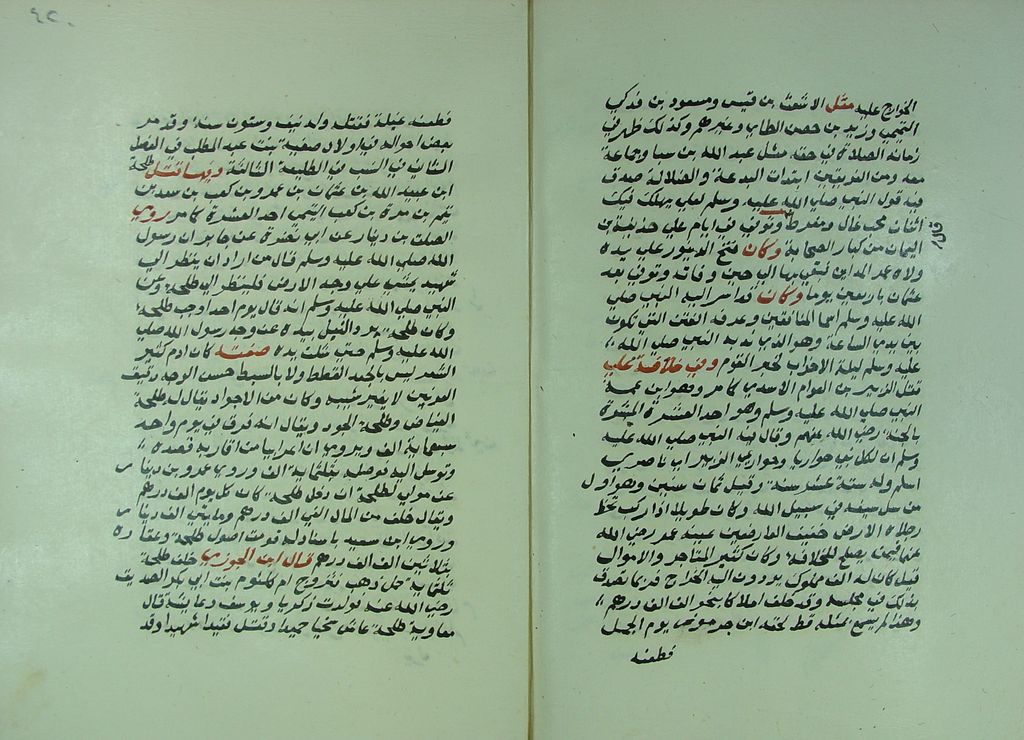 الخوارج عليه مثل الاشعث بن قيس ومسعود بن فدكي
التميمي وزيد بن حصن الطاي وغيرهم وكذلك ظهر في
زمانه الصلاة في حقه مثل عبد الله بن سبا وجماعة
معه ومن الفريقين ابتدات البدعة والضلالة صدق
فيه قول النبي صلى الله عليه وسلم لعلي يهلك فيك
اثنان محب غال ومفرط وتوفي في ايام علي حذيفة بن
قال
اليمان من كبار الصحابة وكان فتح الدينور علي يده
ولاه عمر المداين فبقي بها الي حين وفاته وتوفي بعد
عثمان باربعين يوما وكان قد اسر اليه النبي صلى
الله عليه وسلم اسما المنافقين وعرفه الفتن التي تكون
بين يدي الساعة وهو الذي ندبه النبي صلى الله
عليه وسلم ليلة الاحزاب لخبر القوم وفي خلافة علي
قتل الزبير بن العوام الاسدي كامر وهو ابن عمة
النبي صلى الله عليه وسلم وهو احد العشرة المبشرة
بالجنة رضي الله عنهم وقال فيه النبي صلى الله عليه
وسلم ان لكل نبي حواريا وحواري الزبير اي ناصري
اسلم وله ستة عشر سنة وقيل ثمان سنين وهو اول
من سل سيفه في سبيل الله وكان طويلا اذا ركب تخط
رجلاه الارض خفيف العارضين عينه عمر رضي الله
عنه فيمن يصلح للخلافة وكان كثير المتاجر والاموال
قيل كان له الف مملوك يودون اليه الخراج فربما تصدق
بذلك في مجلسه وقد خلف املاكا بنحو الف الف درهم
وهذا لم يسمع بمثله قط لحقه ابن جرموز يوم الجمل
فطعنه
٤٢٠
فطعنه غيلة فقتله وله نيف وستون سنة وقد مر
بعض احواله في اولاد صفية بنت عبد المطلب في الفصل
الثاني في النسب في الطليعة الثالثة وفيها قتل طلحة
ابن عبيد الله بن عثمان بن عمرو بن كعب بن سعد بن
تيم بن مرة بن كعب التيمي احد العشرة كامر يروي
الصلت بن دينار عن ابي نضرة عن جابر ان رسول
الله صلى الله عليه وسلم قال من اراد ان ينظر الي
شهيد يمشي علي وجه الارض فلينظر الي طلحة وعن
النبي صلى الله عليه وسلم انه قال يوم احد اوجب طلحة
وكان طلحة يرد النبل بيده عن وجه رسول الله صلى
الله عليه وسلم حتي شلت يده صفته كان ادم كثير
الشعر ليس بالجعد القطط ولا بالسبط حسن الوجه دقيق
العرنين لا يغير شيبه وكان من الاجواد يقال له طلحة
الفياض وطلحة الجود ويقال انه فرق في يوم واحد
سبعماية الف ويروي ان اعرابيا من اقاربه قصده
وتوسل اليه فوصله بثلثماية الف وروي عمرو بن دينار
عن مولي لطلحة ان دخل طلحة كان كل يوم الف درهم
ويقال خلف من المال الفي الف درهم ومايتي الف دينار
وروي ابن سعيد باسناد له قومت اصول طلحة وعقاره
بثلاثين الف الف درهم قال ابن الجوزي خلف طلحة
ثلثماية حمل ذهب تزوج ام كلثوم بنت ابي بكر الصديق
رضي الله عنه فولدت زكريا ويوسف وعايشة قال
معاوية طلحة عاش سخيا حميدا وقتل فقيدا شهيدا وقد